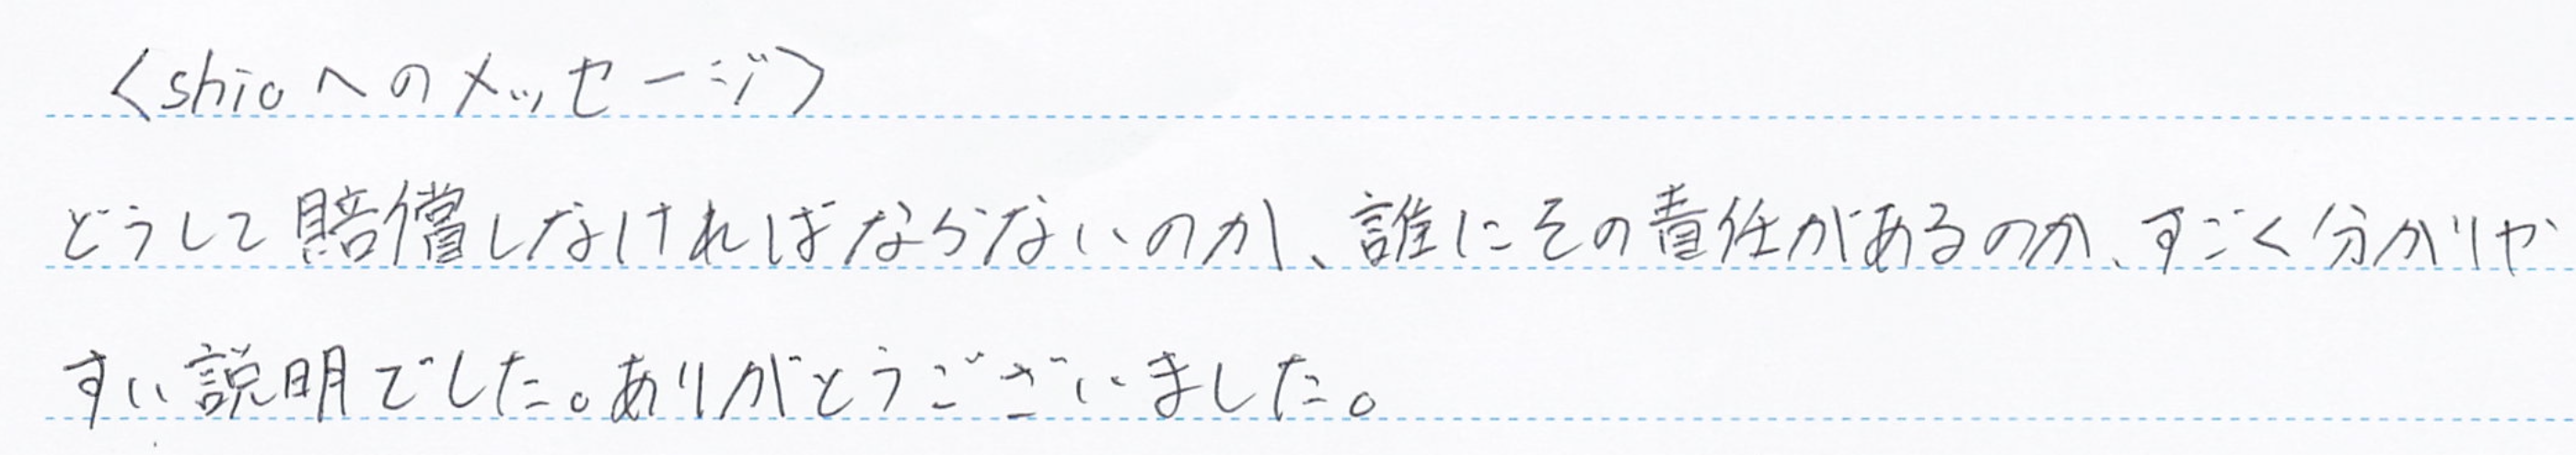 〈shioへのメッセージ〉
どうして賠償しなければならないのか、誰にその責任があるのか、すごく分かりや
すい説明でした。ありがとうございました。